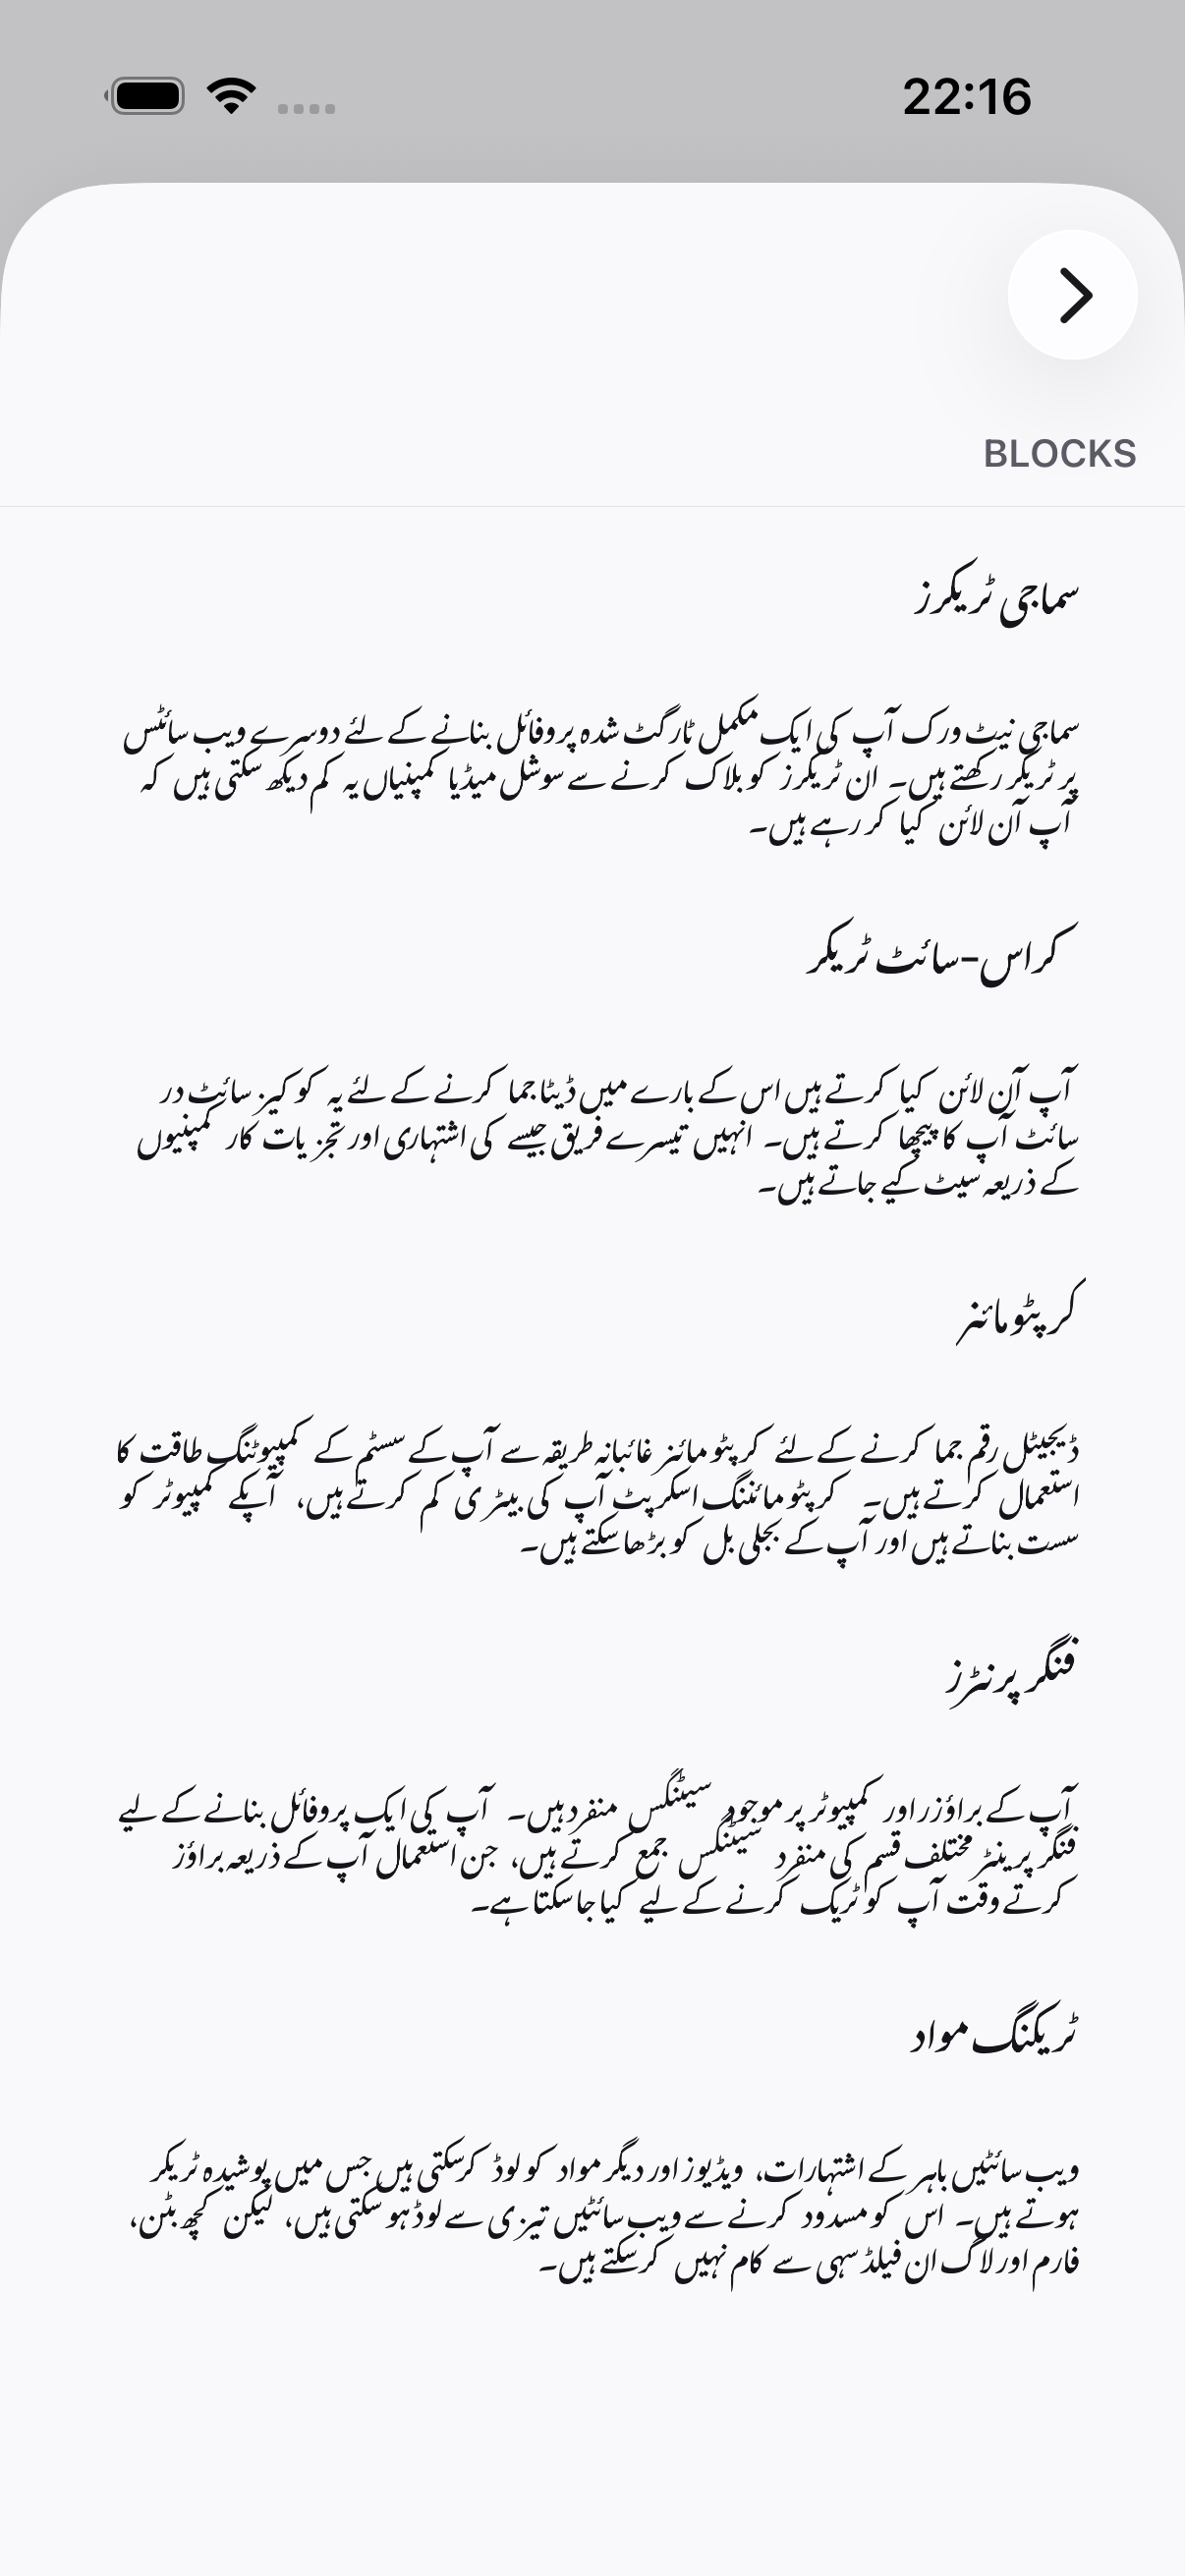 22:16
BLOCKS
سماجی ٹریکرز
سماجی نیٹ ورک آپ کی ایک مکمل ٹارگٹ شدہ پروفائل بنانے کے لئے دوسرے ویب سائٹس
پر ٹریکر رکھتے ہیں۔ ان ٹریکرز کو بلاک کرنے سے سوشل میڈیا کمپنیاں یہ کم دیکھ سکتی ہیں کہ
آپ آن لائن کیا کر رہے ہیں۔
کراس-سائٹ ٹریکر
آپ آن لائن کیا کرتے ہیں اس کے بارے میں ڈیٹا جما کرنے کے لئے یہ کوکیز سائٹ در
سائٹ آپ کا پیچھا کرتے ہیں۔ انہیں تیسرے فریق جیسے کی اشتہاری اور تجزیات کار کمپنیوں
کے ذریعہ سیٹ کیے جاتے ہیں۔
کرپٹومائنر
ڈیجیٹل رقم جما کرنے کے لئے کرپٹومائنر غائبانہ طریقہ سے آپ کے سسٹم کے کمپیوٹنگ طاقت کا
استعمال کرتے ہیں۔ کرپٹومائننگ اسکرپٹ آپ کی بیٹری کم کرتے ہیں، آپکے کمپیوٹر کو
سست بناتے ہیں اور آپ کے بجلی بل کو بڑھا سکتے ہیں۔
فنگر پرنٹرز
آپ کے براؤزر اور کمپیوٹر پر موجود سیٹنگس منفرد ہیں۔ آپ کی ایک پروفائل بنانے کے لیے
فنگر پرینٹر مختلف قسم کی منفرد سیٹنگس جمع کرتے ہیں، جن استعمال آپ کے ذریعہ براؤز
کرتے وقت آپ کو ٹریک کرنے کے لیے کیا جا سکتا ہے۔
ٹریکنگ مواد
ویب سائٹیں باہر کے اشتہارات، ویڈیوز اور دیگر مواد کو لوڈ کرسکتی ہیں جس میں پوشیدہ ٹریکر
ہوتے ہیں۔ اس کو مسدود کرنے سے ویب سائٹیں تیزی سے لوڈ ہو سکتی ہیں، لیکن کچھ بٹن،
فارم اور لاگ ان فیلڈ سہی سے کام نہیں کرسکتے ہیں۔